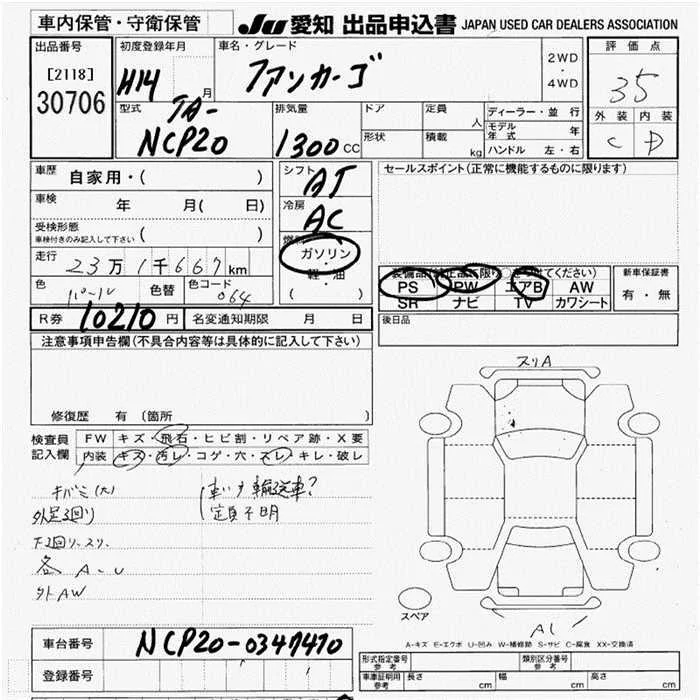 車内保管・守衛保管
JU 愛知 出品申込書 JAPAN USED CAR DEALERS ASSOCIATION
出品番号
[2118]
30706
初度登録年月
H14 月
車名・グレード
ファンカーゴ
2WD
・
4WD
評価点
35
外装 内装
C D
型式
TA-
NCP20
排気量
1300 CC
ドア
形状
定員 人
積載 kg
ディーラー・並行
モデル年式 年
ハンドル 左・右
車歴 自家用・( )
車検 年 月( 日)
受検形態
車検付きのみ記入して下さい ( )
走行 23万1千667km
色 パール 色替 色コード 064
シフト AT
冷房 AC
ガソリン
・
軽・油
( )
セールスポイント(正常に機能するものに限ります)
PS PW エアB AW
SR ナビ TV カワシート
新車保証書
有・無
R券 10210円 名変通知期限 月 日
後日品
注意事項申告欄(不具合内容等は具体的に記入して下さい)
修復歴 有 〔箇所 〕
検査員
記入欄
FW キズ・飛石・ヒビ割・リペア跡・X要
内装 キズ・汚レ・コゲ・穴・スレ・キレ・破レ
キバミ(大)
車いす輸送車?
定員不明
外足回り
下回り・スリ
各 A-U
外AW
スリA
A(
スペア
A-キズ E-エクボ U-凹み W-補修跡 S-サビ C-腐食 XX-交換済
車台番号 NCP20-0347470
登録番号
形式指定番号
参考
類別区分番号
参考
車庫証明用
参考
長さ cm 幅 cm 高さ cm